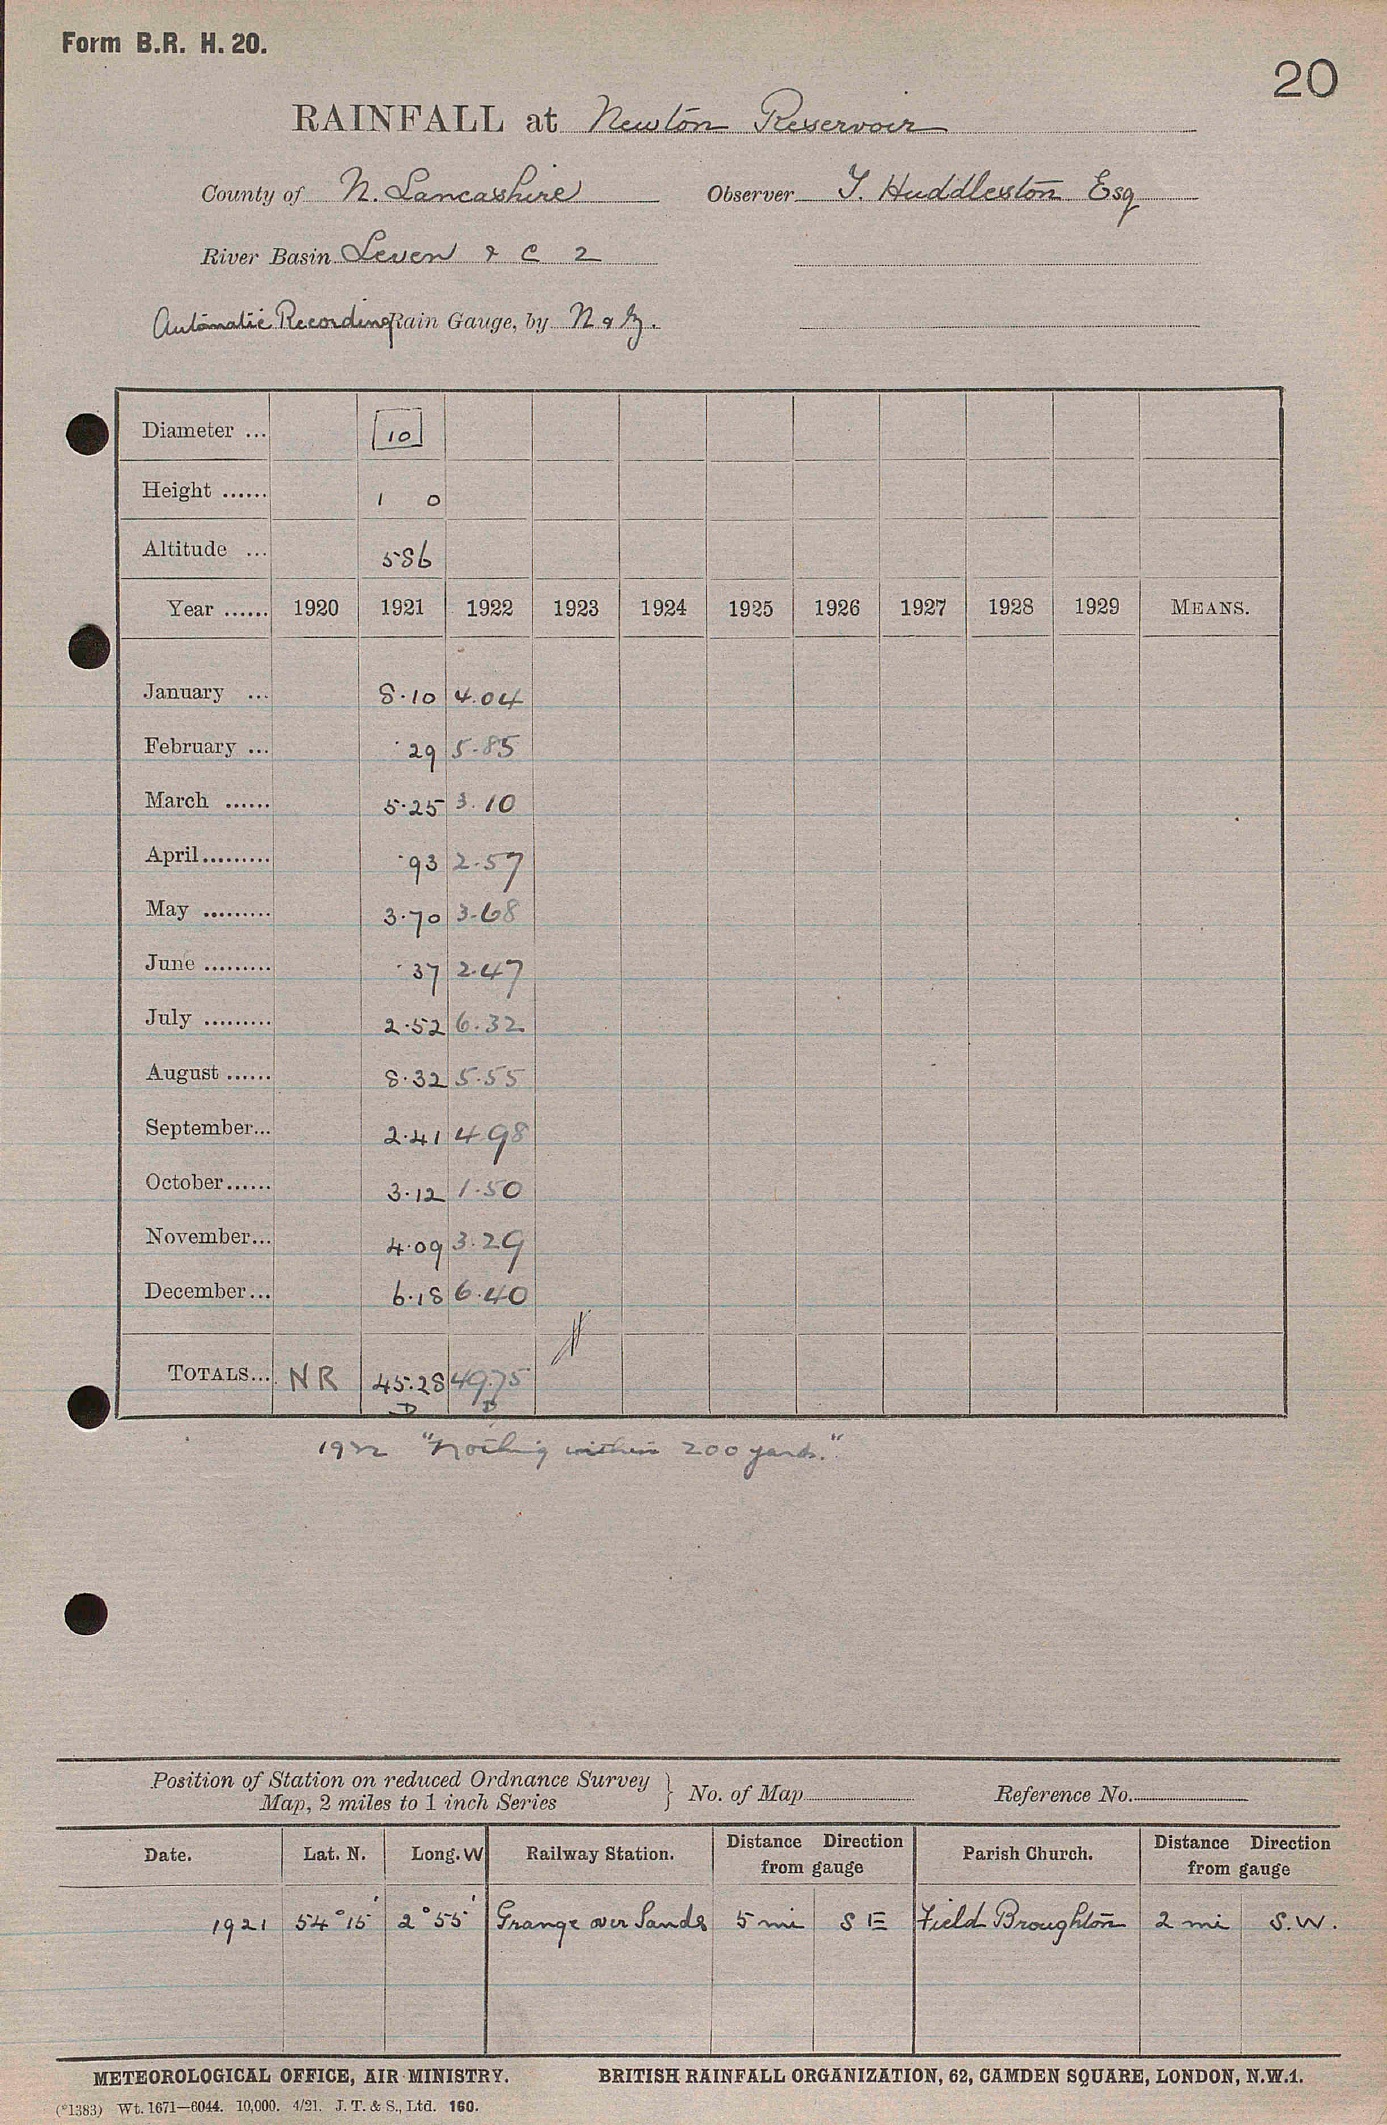 Form B.R. H. 20.
20
RAINFALL at Newton Reservoir
County of N. Lancashire Observer T. Huddleston Esq
River Basin Leven & C 2
Automatic Recording Rain Gauge, by N & Z.
Diameter ... 10
Height ...... 1 0
Altitude ... 586
Year ...... 1920 1921 1922 1923 1924 1925 1926 1927 1928 1929 MEANS.
January ... 8.10 4.04
February ... .29 5.85
March ...... 5.25 3.10
April......... .93 2.57
May ......... 3.70 3.68
June ......... .37 2.47
July ......... 2.52 6.32
August ...... 8.32 5.55
September... 2.41 4.98
October...... 3.12 1.50
November... 4.09 3.29
December... 6.18 6.40
TOTALS... NR 45.28 49.75
D D
1922 "Nothing within 200 yards."
Position of Station on reduced Ordnance Survey
Map, 2 miles to 1 inch Series } No. of Map Reference No.
Date. Lat. N. Long. W Railway Station. Distance Direction from gauge Parish Church. Distance Direction from gauge
1921 54° 15' 2° 55' Grange over Sands 5 mi S E Field Broughton 2 mi S.W.
METEOROLOGICAL OFFICE, AIR MINISTRY. BRITISH RAINFALL ORGANIZATION, 62, CAMDEN SQUARE, LONDON, N.W.1.
(*1383) Wt. 1671—6044. 10,000. 4/21. J. T. & S., Ltd. 160.